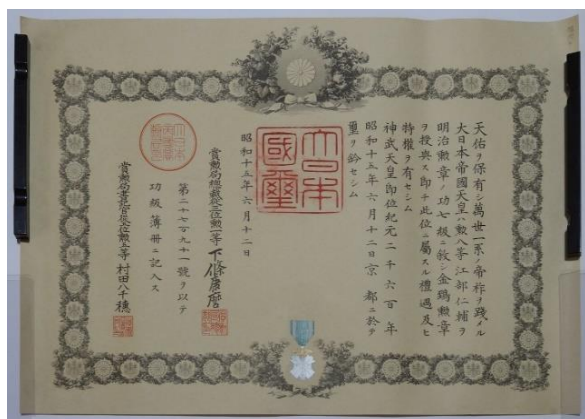 天佑ヲ保有シ萬世一系ノ帝祚ヲ踐メル
大日本帝國天皇ハ勲八等江部仁輔ヲ
明治勲章ノ功七級ニ敍シ金鵄勲章
ヲ授與ス即チ此位ニ屬スル禮遇及ヒ
特權ヲ有セシム
神武天皇即位紀元二千六百年
昭和十五年六月十二日京都ニ於テ
璽ヲ鈐セシム
大日本國璽
昭和十五年六月十二日
賞勲局總裁從三位勲一等下條康麿
第二千七百九十一號ヲ以テ
功級簿冊ニ記入ス
賞勲局書記官從五位勲五等村田八千穂